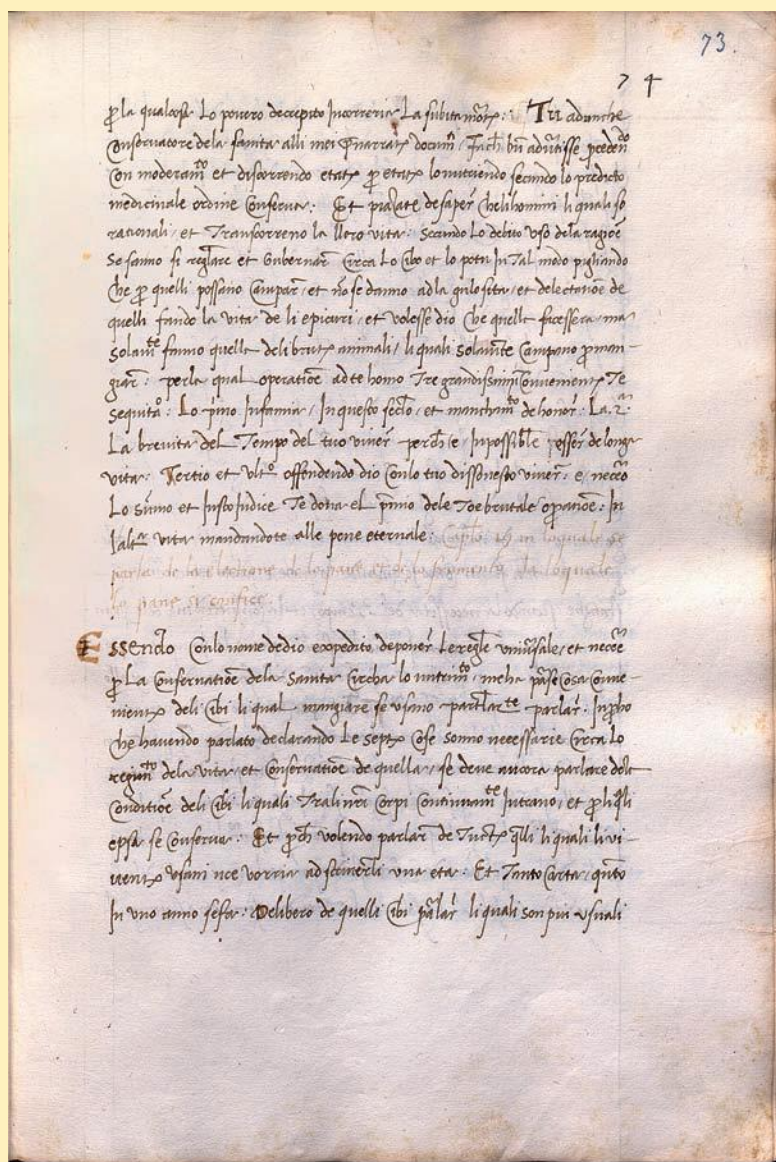 73.
74
p la qualcosa Lo povero decrepito Incorreria La subita morte: Tu adunche
Conservatore dela sanita alli mei narrati docum
con moderam et discorrendo etate p etate lo nutriendo secundo lo predicto
medicinale ordine Conserva: Et piazate de saper che li homini li quali so
rationali, et Transcorreno la lloro vita: secundo Lo debito uso dela ragioe
Se sanno si reglare et Gubernar Circa Lo Cibo et lo potu In Tal modo pigliando
Che p quelli possano Campar, et no se danno ad la gulosita, et delectatione de
quelli fando la vita de li epicuri, et volesse dio Che quelle facessera, ma
Solamte fanno quella deli brute animali, li quali Solamte Campano p man-
giar: perla qual operatioe ad te homo Tre grandissimi Conveniente Te
sequita: Lo pmo Infamia, In questo seclo, et mancham de honor: La 2a:
La brevita del Tempo del tuo viver perche e Impossibile posser de longa
vita: Tertio et ulto offendendo dio Conlo tuo dissonesto viver: e, necrio
Lo Sumo et Justo Judice Te dona el pmio dele Toe brutale opatioe: In
laltra vita mandandote alle pene eternale: Caplo in loquale se
parla de la electione de lo pane et de lo fromento dela loquale
lo pane si confice
Essendo Conlo nome de dio expedito deponer Le regle universale, et necrie
p La Conservatioe dela Sanita Circha lo nutrim, me ha parse Cosa Conve-
niente deli Cibi li qual mangiare se usano partclarte parlar: In pho
che havendo parlato declarando Le septe Cose sonno necessarie Circa Lo
regim dela vita, et Conservatioe de quella, se deve ancora parlare dele
Conditioe deli Cibi li quali Tra li nri Corpi Continuamte Intrano, et p li qli
epsa se Conserva: Et pche volendo parlar de Tucte qlli li quali li vi-
vente usani nce vorria ad scriverli una eta: Et Tanto Carta, qnto
In uno anno se fa: Delibero de quelli Cibi parlar li quali son piu usuali